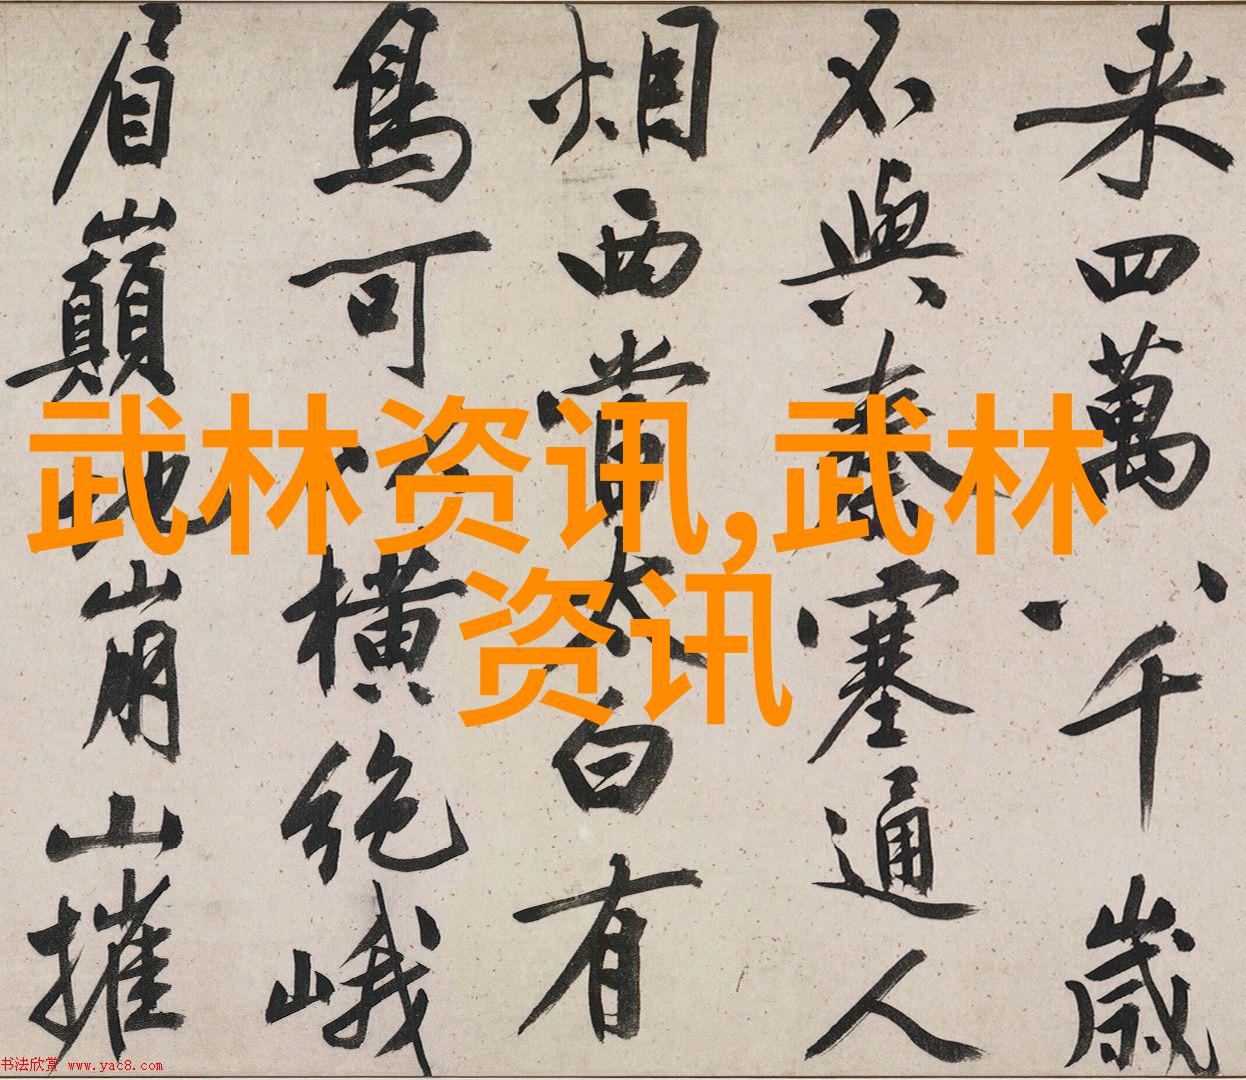 来四萬八千歲
不與秦塞通人
烟西當太白有
鳥可以橫絕峨
眉巔地崩山摧
武林资讯,武林
资讯
书法欣赏 www.yac8.com